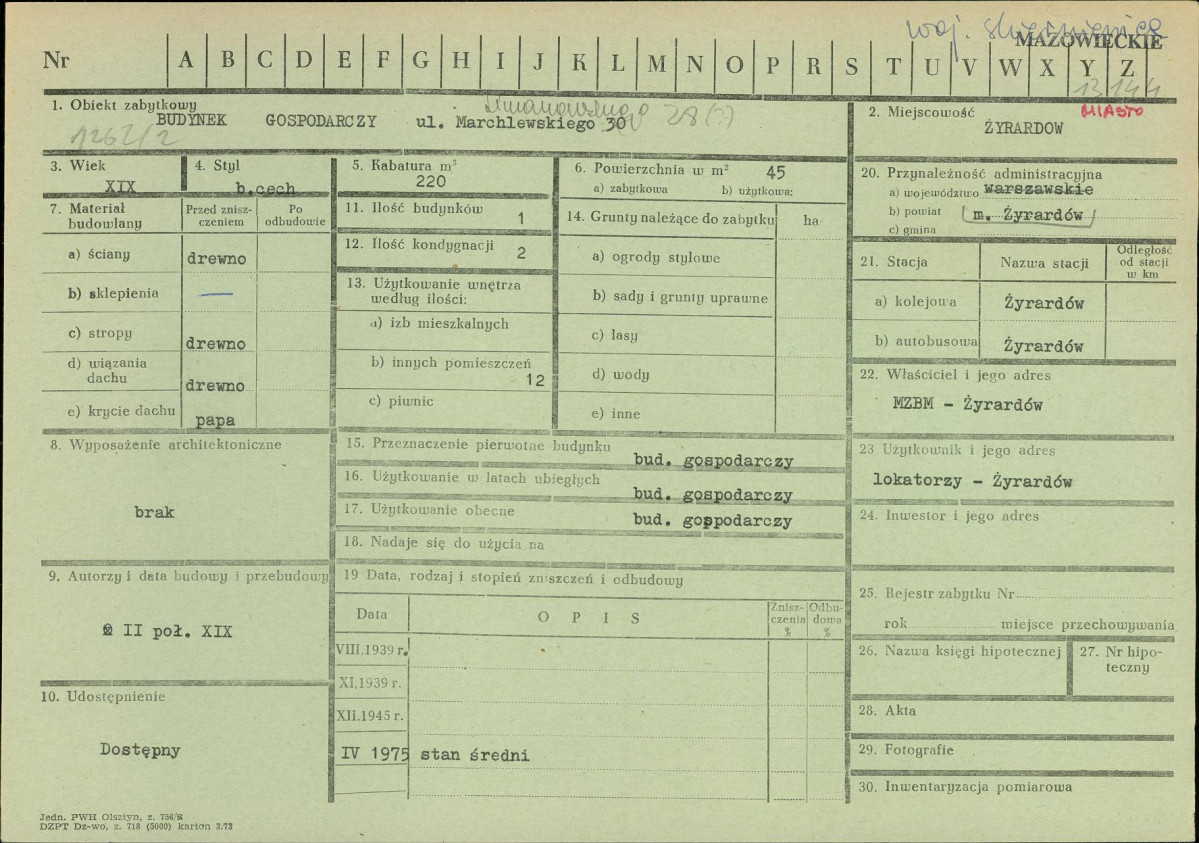 woj. skierniewice
MAZOWIECKIE
Nr A B C D E F G H I J K L M N O P R S T U V W X Y Z
13144
1. Obiekt zabytkowy
BUDYNEK GOSPODARCZY ul. Marchlewskiego 30
28(?)
1262/2
2. Miejscowość
MIASTO
ŻYRARDOW
3. Wiek
XIX
4. Styl
b.cech
5. Kabatura m³
220
6. Powierzchnia w m² 45
a) zabytkowa b) użytkowa:
20. Przynależność administracyjna
a) województwo warszawskie
b) powiat (m. Żyrardów)
c) gmina
7. Materiał budowlany
Przed zniszczeniem
Po odbudowie
a) ściany drewno
b) sklepienia —
c) stropy drewno
d) wiązania dachu drewno
e) krycie dachu papa
11. Ilość budynków 1
12. Ilość kondygnacji 2
13. Użytkowanie wnętrza
według ilości:
a) izb mieszkalnych
b) innych pomieszczeń
12
c) piwnic
14. Grunty należące do zabytku ha
a) ogrody stylowe
b) sady i grunty uprawne
c) lasy
d) wody
e) inne
21. Stacja
Nazwa stacji
Odległość od stacji w km
a) kolejowa Żyrardów
b) autobusowa Żyrardów
22. Właściciel i jego adres
MZBM - Żyrardów
8. Wyposażenie architektoniczne
brak
15. Przeznaczenie pierwotne budynku
bud. gospodarczy
16. Użytkowanie w latach ubiegłych
bud. gospodarczy
17. Użytkowanie obecne
bud. gospodarczy
18. Nadaje się do użycia na
23 Użytkownik i jego adres
lokatorzy - Żyrardów
24. Inwestor i jego adres
9. Autorzy i data budowy i przebudowy
II poł. XIX
19 Data, rodzaj i stopień zniszczeń i odbudowy
Data
O P I S
Zniszczenia %
Odbudowa %
VIII.1939 r.
XI.1939 r.
XII.1945 r.
IV 1975 stan średni
25. Rejestr zabytku Nr
rok miejsce przechowywania
26. Nazwa księgi hipotecznej
27. Nr hipoteczny
10. Udostępnienie
Dostępny
28. Akta
29. Fotografie
30. Inwentaryzacja pomiarowa
Jedn. PWH Olsztyn, z. 756/S
DZPT Dz-wo, z. 718 (5000) karton 3.73